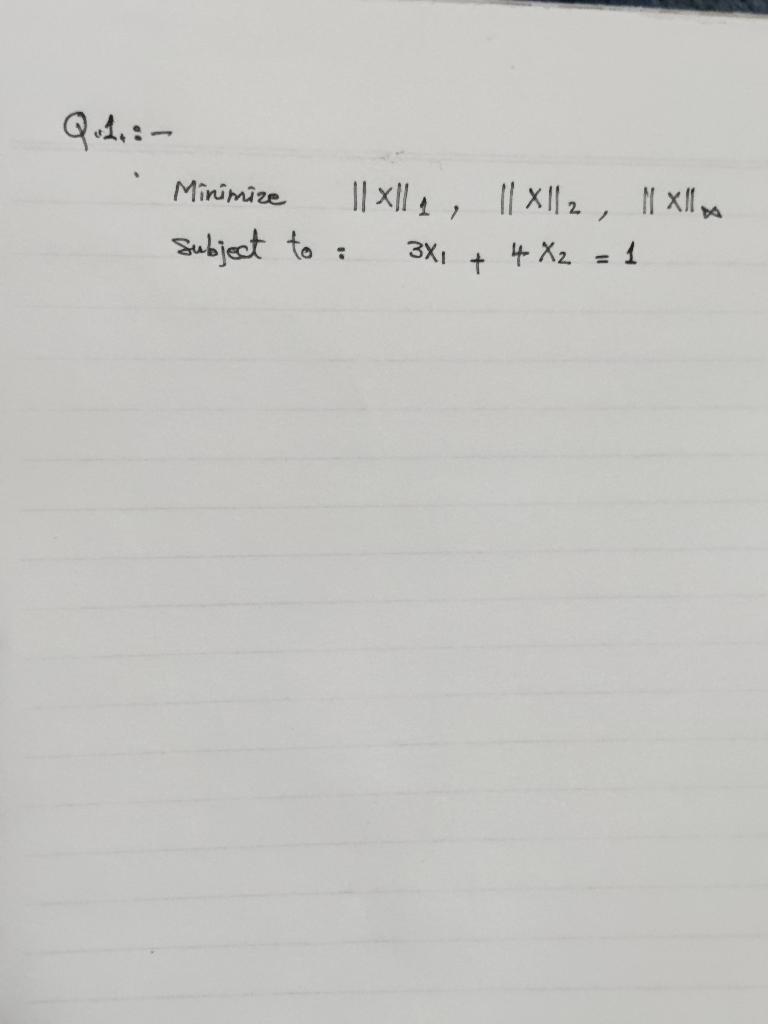 Q.1.:-
Minimize ||X||₁ , ||X||₂ , ||X||∞
Subject to : 3X₁ + 4X₂ = 1